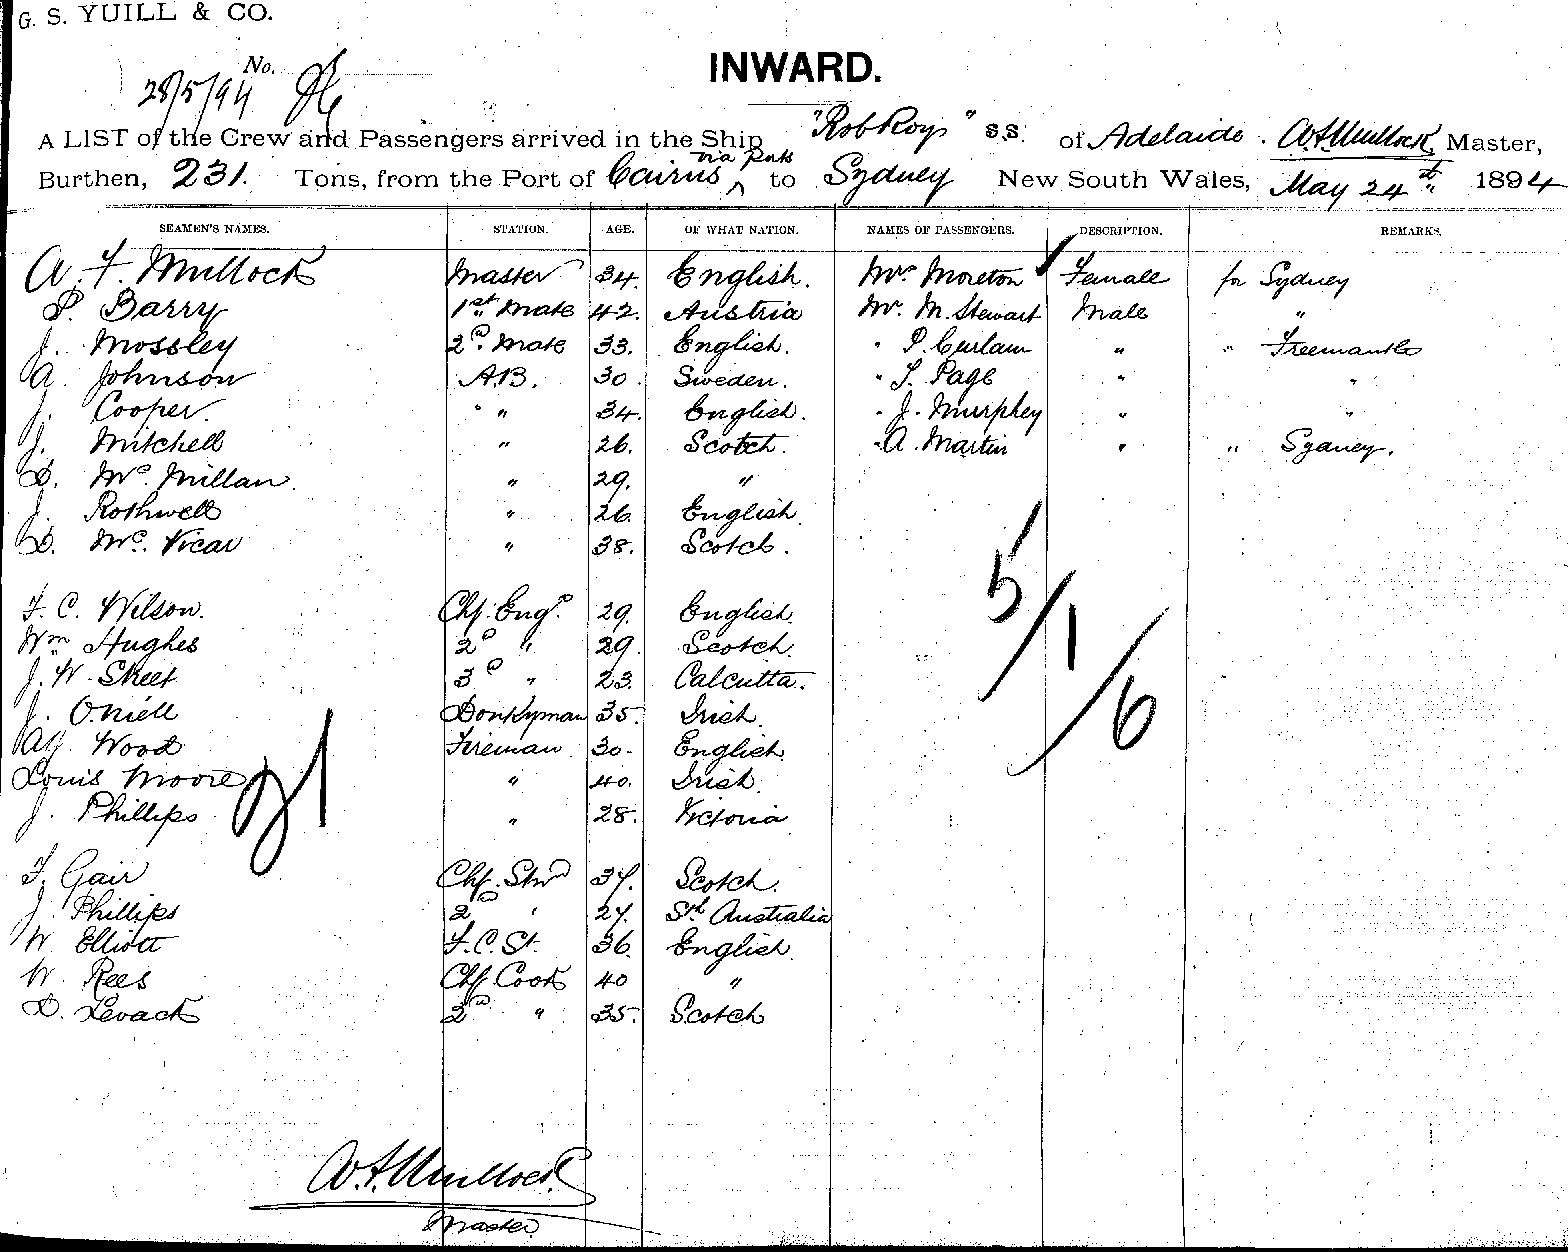 G. S. YUILL & CO.
INWARD.
No.
28/5/94
A LIST of the Crew and Passengers arrived in the Ship "Rob Roy" S.S. of Adelaide. A. F. Mullock, Master,
Burthen, 231. Tons, from the Port of Cairns via Ports to Sydney New South Wales, May 24th 1894
SEAMEN'S NAMES. STATION. AGE. OF WHAT NATION. NAMES OF PASSENGERS. DESCRIPTION. REMARKS.
A. F. Mullock Master 34. English. Mrs Moreton Female for Sydney
P. Barry 1st Mate 42. Austria Mr. M. Stewart Male "
J. Mossley 2d. Mate 33. English. " P. Curlain " " Freemantle
A. Johnson A.B. 30. Sweden. " T. Page " "
J. Cooper. " " 34. English. " J. Murphey " "
J. Mitchell " 26. Scotch. " A. Martin " " Sydney.
D. Mc. Millan. " 29. "
J. Rothwell " 26. English.
D. Mc. Vicar " 38. Scotch.
5/1/6
F. C. Wilson. Chf. Engr. 29. English.
Wm Hughes 2d " 29. Scotch.
J. W. Skeet 3d " 23. Calcutta.
J. O.niell Donkyman 35. Irish.
Alf. Wood Fireman 30. English.
Louis Moore " 40. Irish.
J. Phillips " 28. Victoria
21
F. Gair Chf. Stwd 37. Scotch.
J. Phillips 2d " 27. Sth Australia
W. Elliott F.C.St. 36. English.
W. Rees Chf. Cook 40 "
D. Levack 2d " 35. Scotch
A. F. Mullock
Master